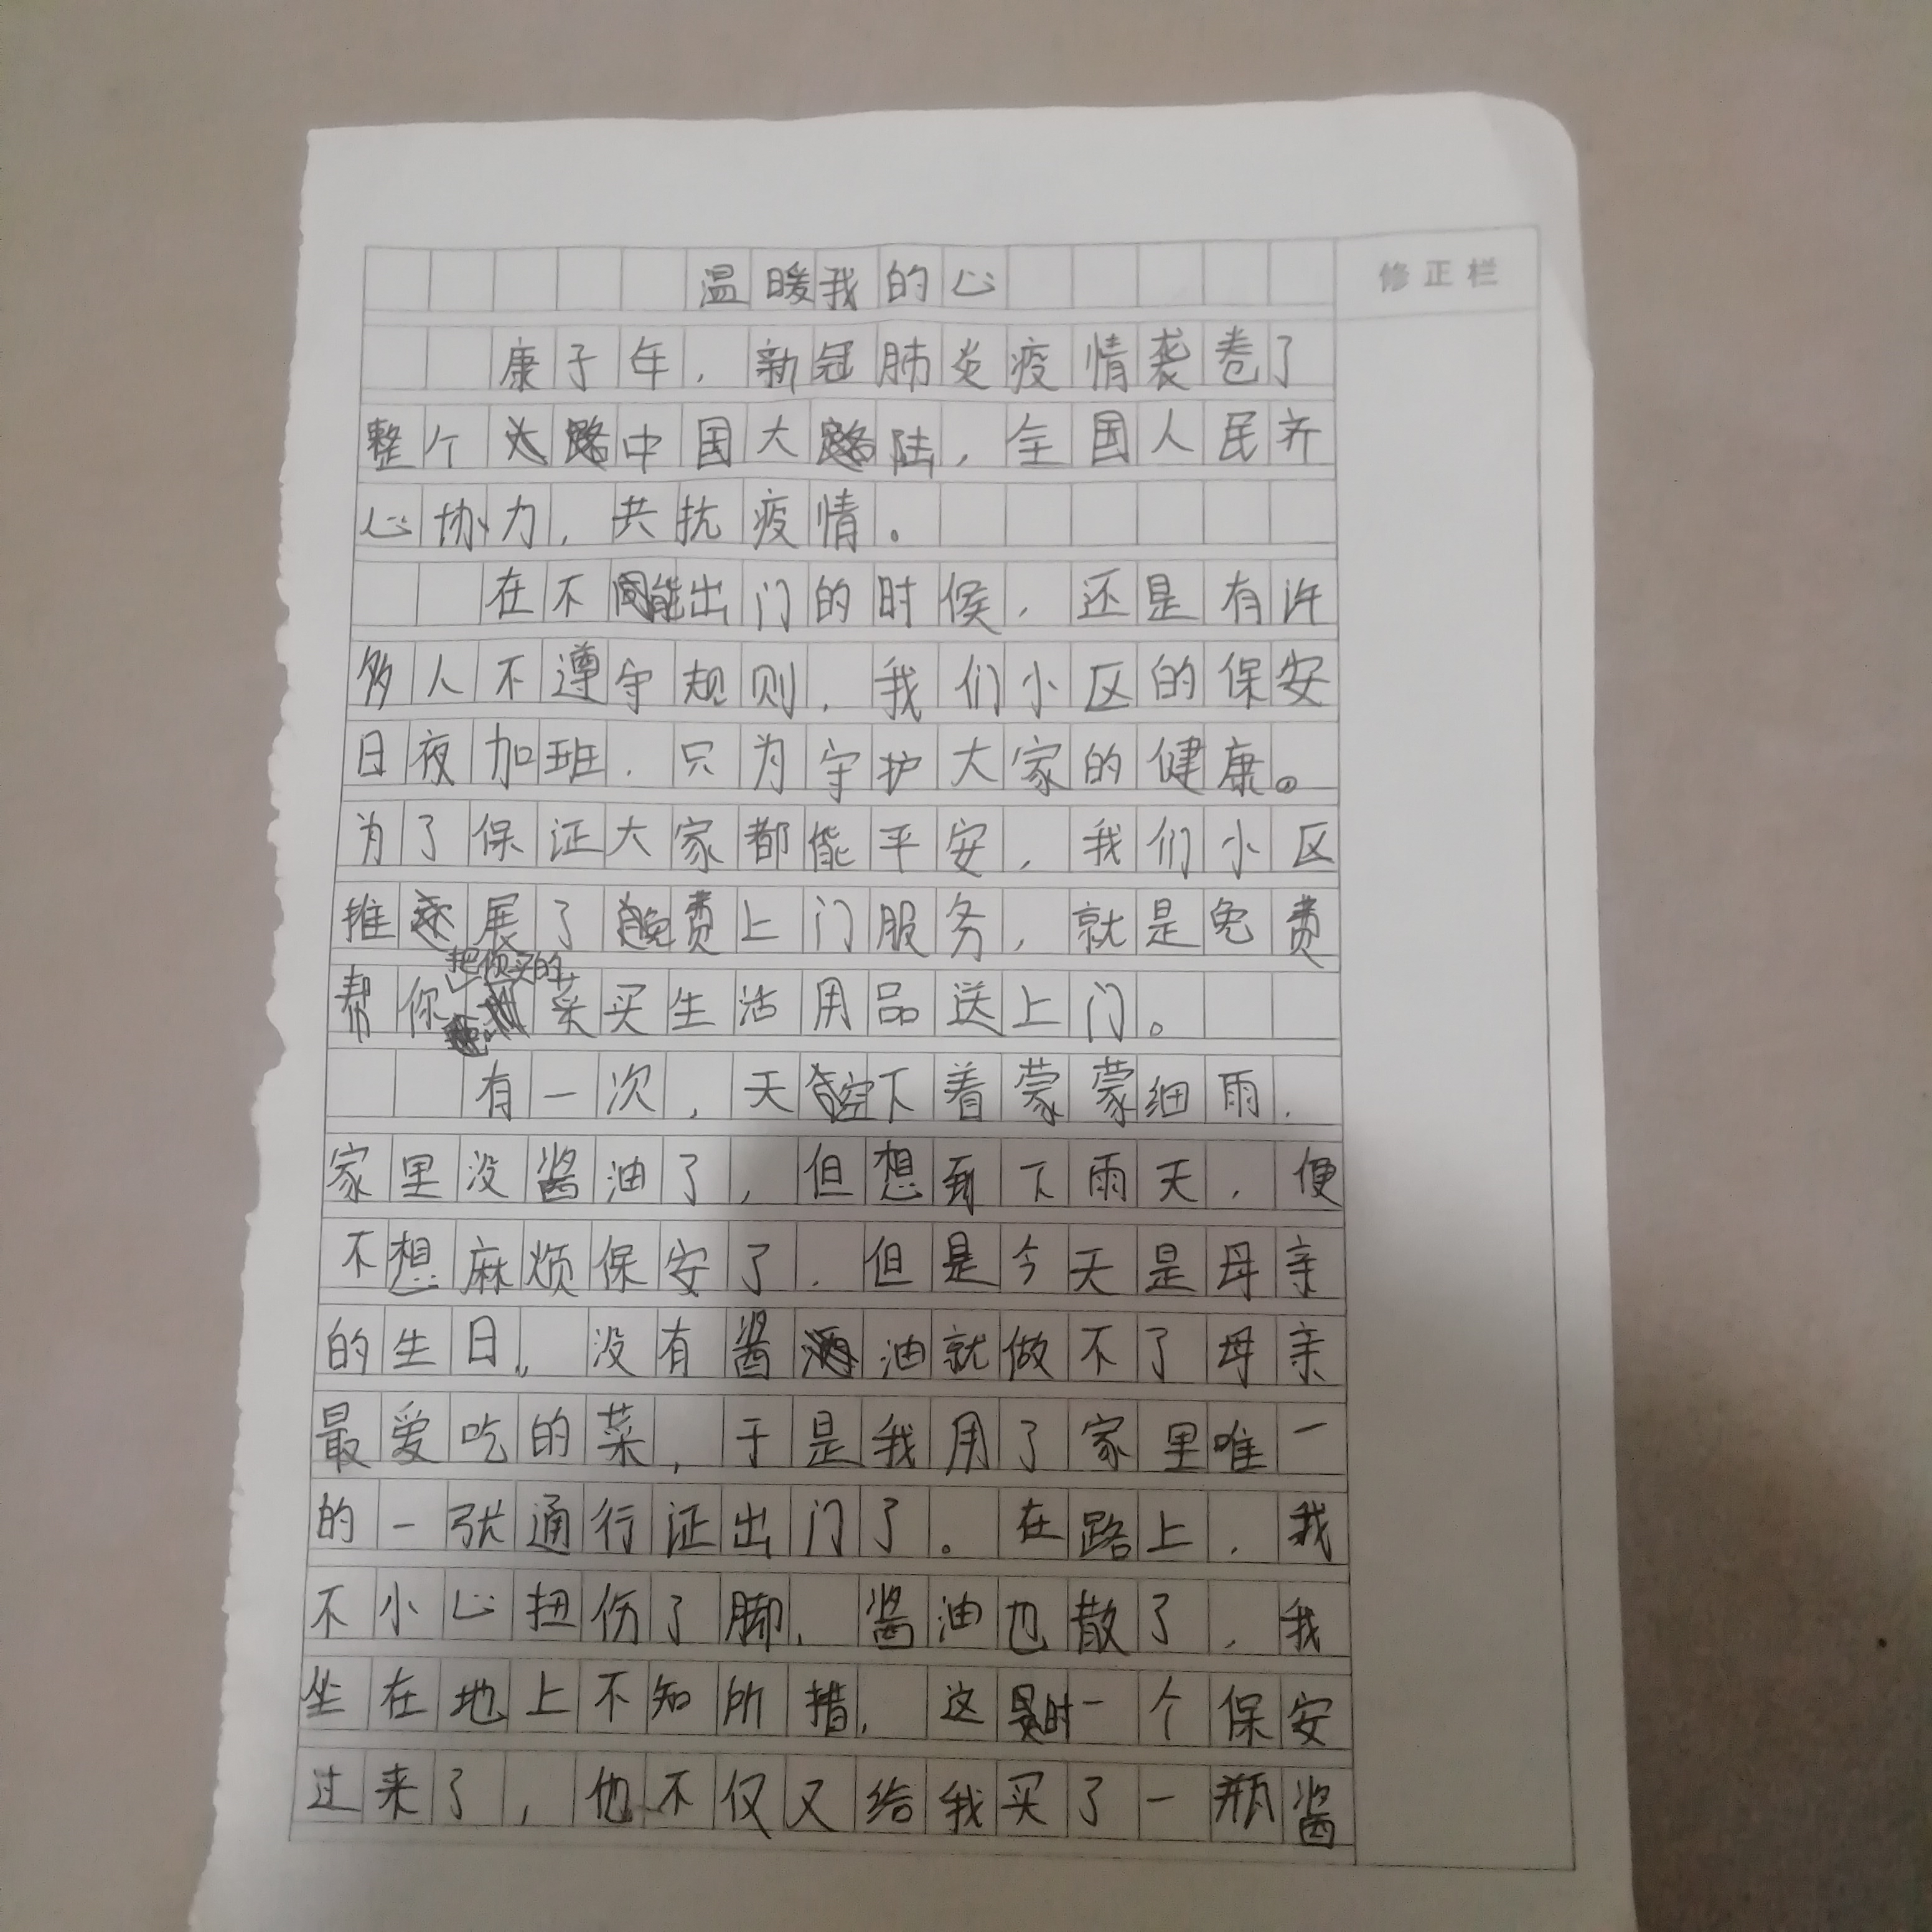 温暖我的心
修正栏
康子年，新冠肺炎疫情袭卷了
整个中国大陆，全国人民齐
心协力，共抗疫情。
在不能出门的时候，还是有许
多人不遵守规则，我们小区的保安
日夜加班，只为守护大家的健康。
为了保证大家都能平安，我们小区
推展了免费上门服务，就是免费
把你买的
帮你菜买生活用品送上门。
有一次，天空下着蒙蒙细雨，
家里没酱油了，但想到下雨天，便
不想麻烦保安了，但是今天是母亲
的生日，没有酱油就做不了母亲
最爱吃的菜，于是我用了家里唯一
的一张通行证出门了。在路上，我
不小心扭伤了脚，酱油也散了，我
坐在地上不知所措，这时一个保安
过来了，他不仅又给我买了一瓶酱